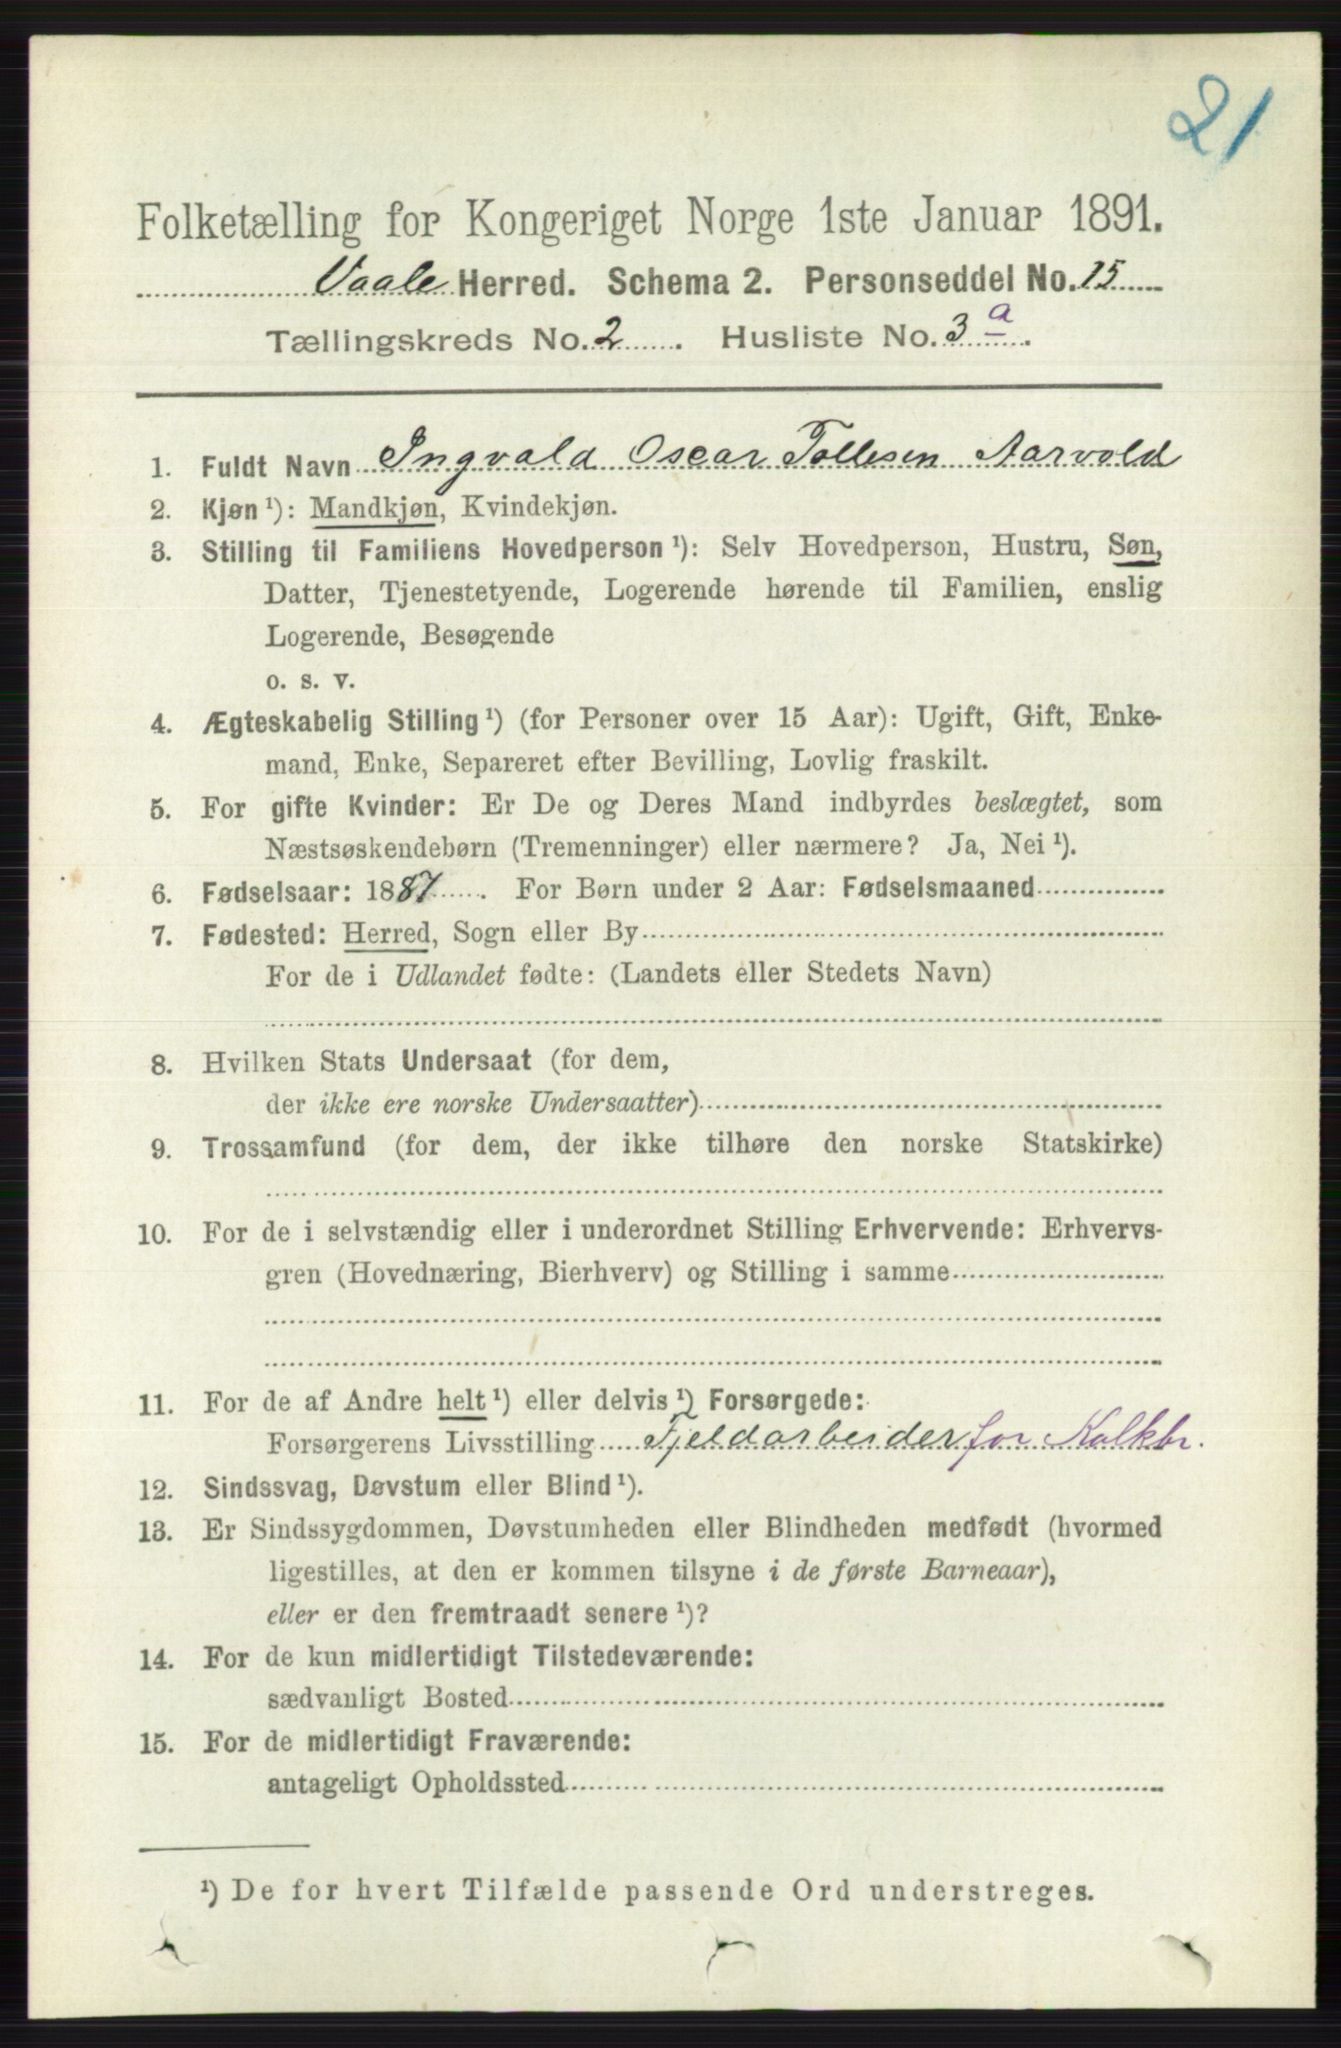 21
Folketælling for Kongeriget Norge 1ste Januar 1891.
Vaale Herred. Schema 2. Personseddel No. 15
Tællingskreds No. 2. Husliste No. 3 a.
1. Fuldt Navn Ingvald Oscar Tollesen Aarvold
2. Kjøn ¹): Mandkjøn, Kvindekjøn.
3. Stilling til Familiens Hovedperson ¹): Selv Hovedperson, Hustru, Søn,
Datter, Tjenestetyende, Logerende hørende til Familien, enslig
Logerende, Besøgende
o. s. v.
4. Ægteskabelig Stilling ¹) (for Personer over 15 Aar): Ugift, Gift, Enke-
mand, Enke, Separeret efter Bevilling, Lovlig fraskilt.
5. For gifte Kvinder: Er De og Deres Mand indbyrdes beslægtet, som
Næstsøskendebørn (Tremenninger) eller nærmere? Ja, Nei ¹).
6. Fødselsaar: 1887. For Børn under 2 Aar: Fødselsmaaned
7. Fødested: Herred, Sogn eller By
For de i Udlandet fødte: (Landets eller Stedets Navn)
8. Hvilken Stats Undersaat (for dem,
der ikke ere norske Undersaatter)
9. Trossamfund (for dem, der ikke tilhøre den norske Statskirke)
10. For de i selvstændig eller i underordnet Stilling Erhvervende: Erhvervs-
gren (Hovednæring, Bierhverv) og Stilling i samme
11. For de af Andre helt ¹) eller delvis ¹) Forsørgede:
Forsørgerens Livsstilling Fjeldarbeider for Kalkbr.
12. Sindssvag, Døvstum eller Blind ¹).
13. Er Sindssygdommen, Døvstumheden eller Blindheden medfødt (hvormed
ligestilles, at den er kommen tilsyne i de første Barneaar),
eller er den fremtraadt senere ¹)?
14. For de kun midlertidigt Tilstedeværende:
sædvanligt Bosted
15. For de midlertidigt Fraværende:
antageligt Opholdssted
¹) De for hvert Tilfælde passende Ord understreges.